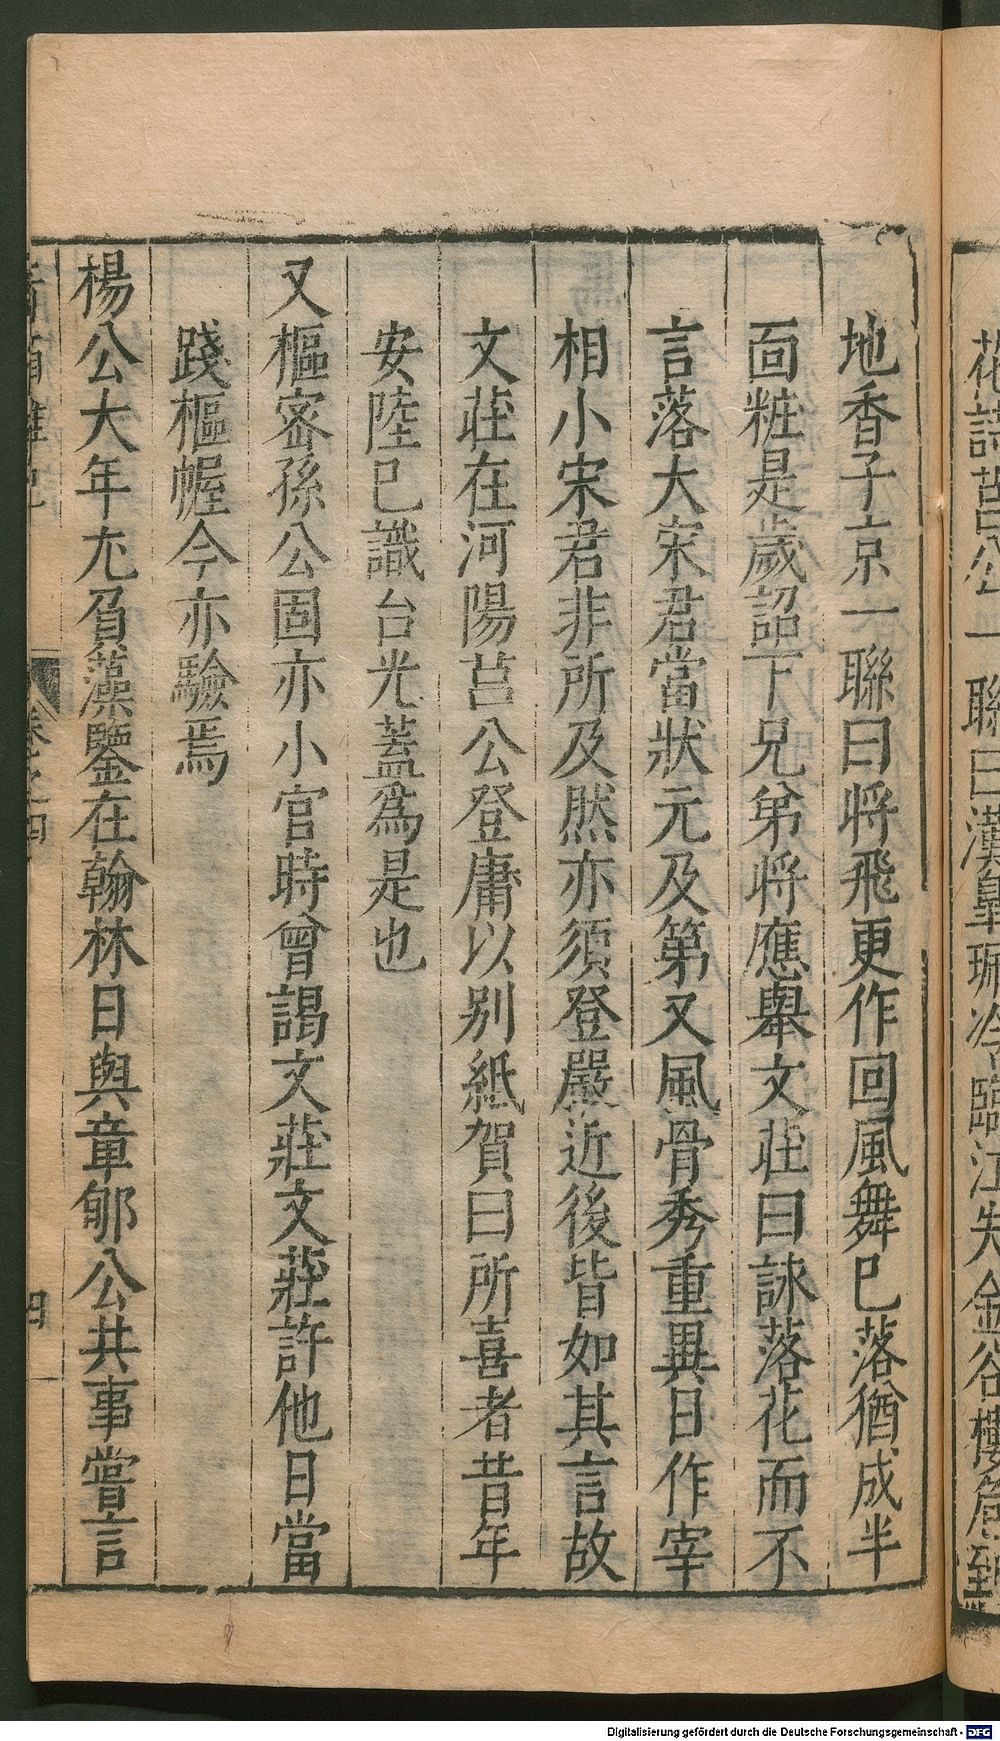 花詩莒公一聯曰漢臯珮冷臨江失金谷樓危到
地香子京一聯曰将飛更作回風舞巳落猶成半
面粧是歲詔下兄弟将應舉文莊曰詠落花而不
言落大宋君當狀元及第又風骨秀重異日作宰
相小宋君非所及然亦須登嚴近後皆如其言故
文莊在河陽莒公登庸以别紙賀曰所喜者昔年
安陸巳識台光蓋爲是也
又樞宻孫公固亦小官時曾謁文莊文莊許他日當
踐樞幄今亦驗焉
楊公大年尤負藻鑒在翰林日與章郇公共事嘗言
青箱雜記
卷之四
四
Digitalisierung gefördert durch die Deutsche Forschungsgemeinschaft - DFG